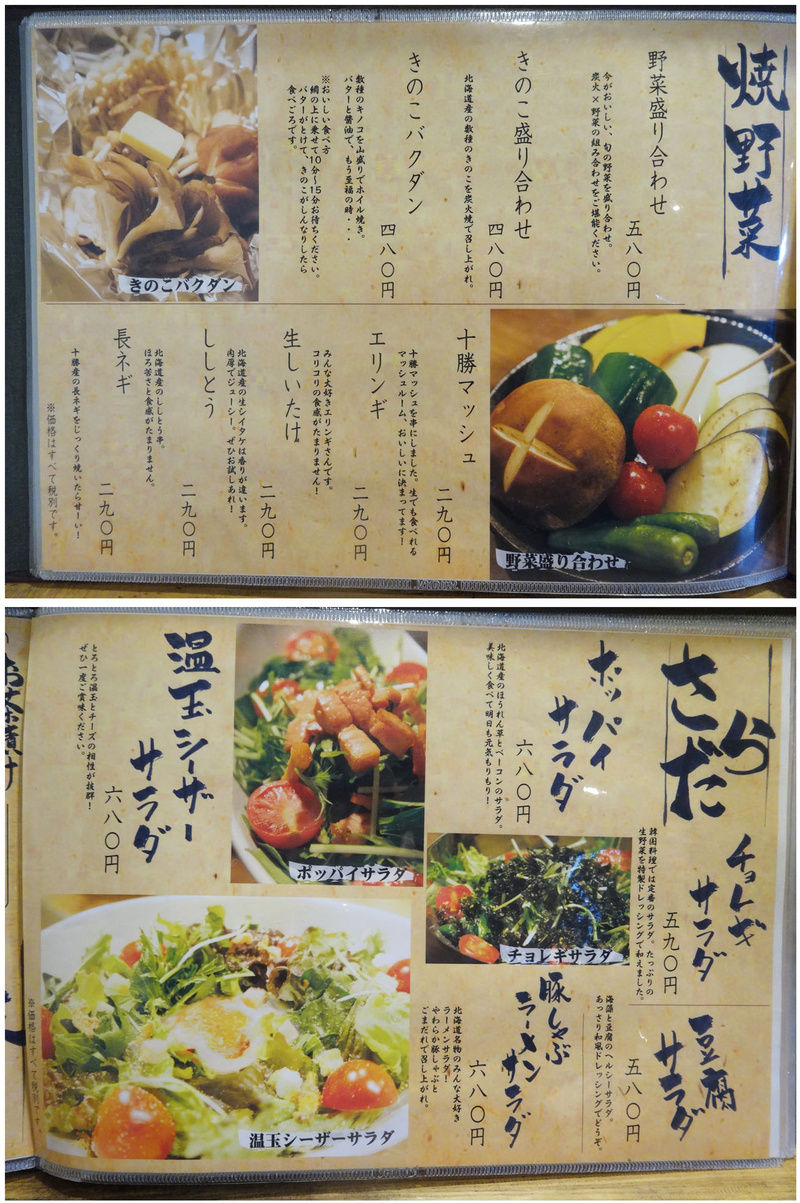 焼野菜
野菜盛り合わせ
今がおいしい、旬の野菜を盛り合わせ。
炭火×野菜の組み合わせをご堪能ください。
五八〇円
きのこ盛り合わせ
北海道産の数種のきのこを炭火焼で召し上がれ。
四八〇円
きのこバクダン
四八〇円
数種のキノコを山盛りでホイル焼き。
バターと醤油で、もう至福の時・・・
※おいしい食べ方
網の上に乗せて10分〜15分お待ちください。
バターがとけて、きのこがしんなりしたら
食べごろです。
きのこバクダン
野菜盛り合わせ
十勝マッシュ
二九〇円
十勝マッシュを串にしました。生でも食べれる
マッシュルーム、おいしいに決まってます！
エリンギ
二九〇円
みんな大好きエリンギさんです。
コリコリの食感がたまりません！
生しいたけ
二九〇円
北海道産の生シイタケは香りが違います。
肉厚でジューシー。ぜひお試しあれ！
ししとう
二九〇円
北海道産のししとう串。
ほろ苦さと食感がたまりません。
長ネギ
二九〇円
十勝産の長ネギをじっくり焼いたら甘ーい！
※価格はすべて税別です。
さらだ
チョレギ
サラダ
韓国料理では定番のサラダ。たっぷりの
生野菜を特製ドレッシングで和えました。
五九〇円
豆腐
サラダ
五八〇円
海藻と豆腐のヘルシーサラダ。
あっさり和風ドレッシングでどうぞ。
ポッパイ
サラダ
六八〇円
北海道産のほうれん草とベーコンのサラダ。
美味しく食べて明日も元気もりもり！
チョレギサラダ
豚しゃぶ
ラーメン
サラダ
六八〇円
北海道名物のみんな大好き
ラーメンサラダ！
やわらか豚しゃぶと
ごまだれで召し上がれ。
ポッパイサラダ
温玉シーザー
サラダ
六八〇円
とろとろ温玉とチーズの相性が抜群！
ぜひ一度ご賞味ください。
温玉シーザーサラダ
※価格はすべて税別です
お茶漬け